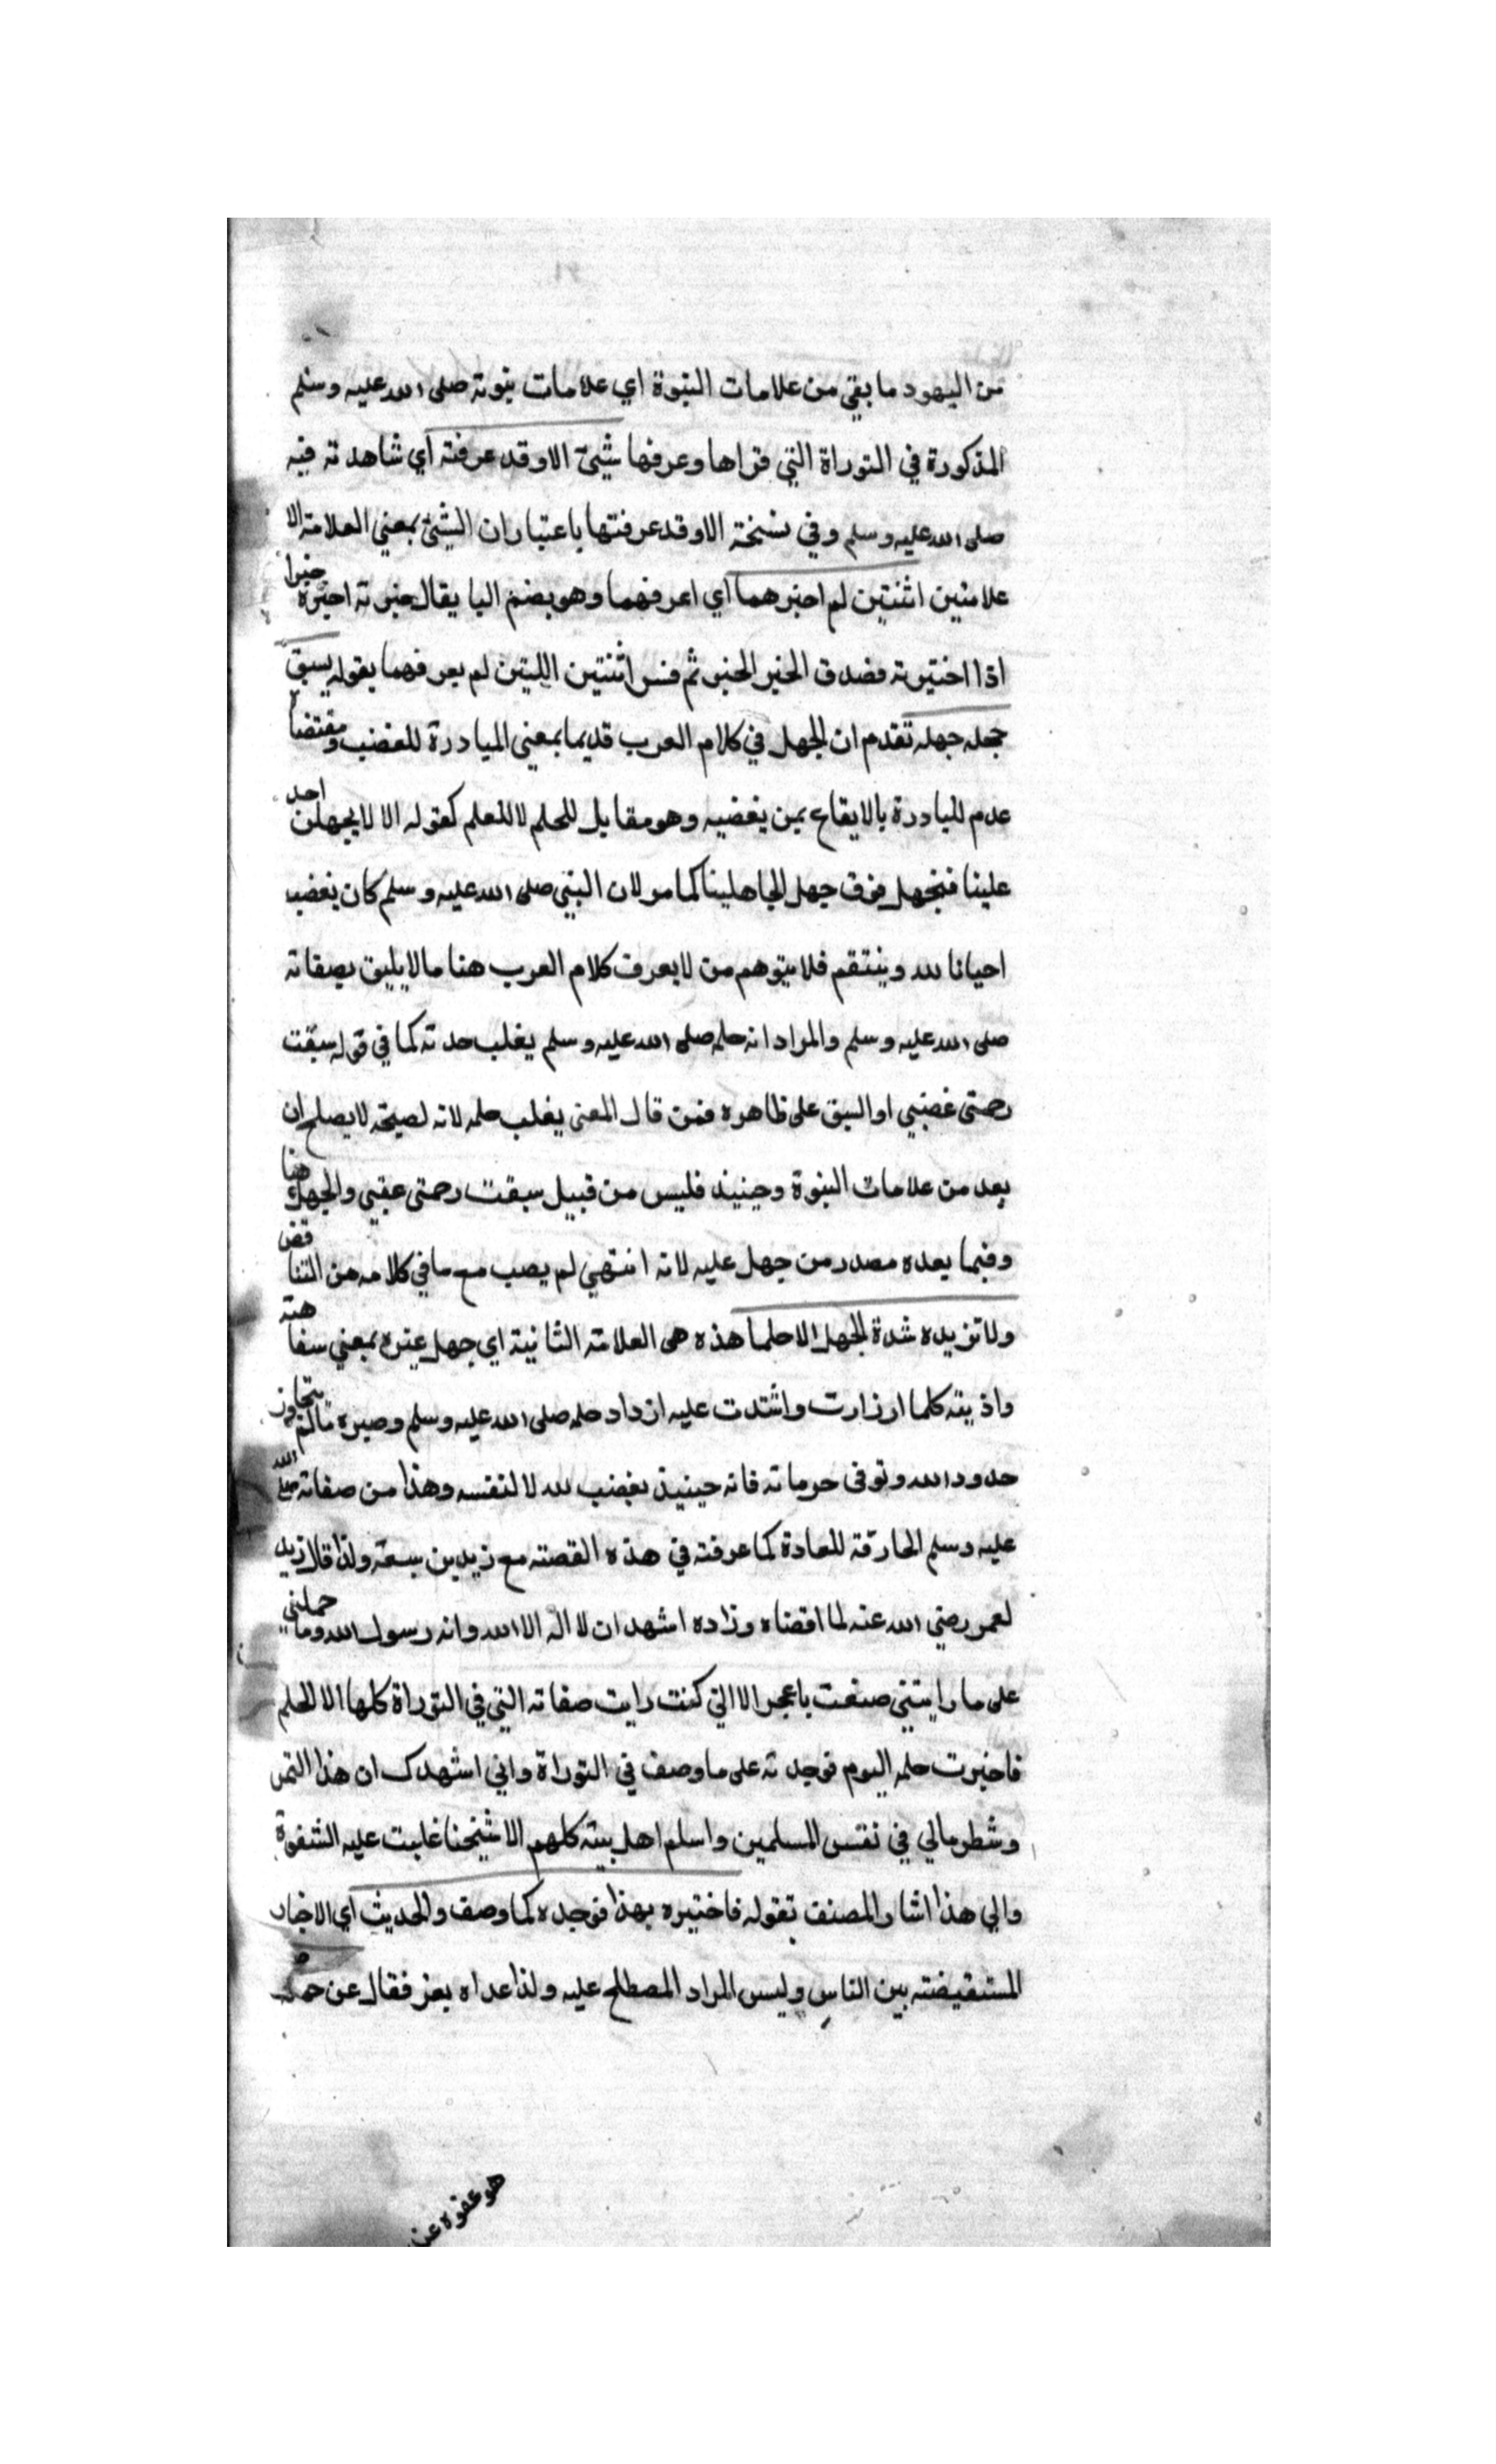 من اليهود ما بقي من علامات النبوة اي علامات نبوته صلى الله عليه وسلم
المذكورة في التوراة التي قراها وعرفها شيئ الا وقد عرفته اي شاهدته فيه
صلى الله عليه وسلم وفي نسخة الا وقد عرفتها باعتبار ان الشئ بمعنى العلامة الا
علامتين اثنتين لم اخبرهما اي اعرفهما وهو بضم البا يقال خبرته اخبره خبرا
اذا اختبرته فصدق الخبر الخبر ثم فسر اثنتين اللتين لم يعرفهما بقوله يسبق
حمله جهله تقدم ان الجهل في كلام العرب قديما بمعنى المبادرة للغضب ومقتضا
عدم المبادرة بالايقاع بمن يغضبه وهو مقابل للحلم لا للعلم كقوله الا لا يجهلن احد
علينا فنجهل فوق جهل الجاهلينا كما مر لان النبي صلى الله عليه وسلم كان يغضب
احيانا لله وينتقم فلا يتوهم من لا يعرف كلام العرب هنا ما لا يليق بصفاته
صلى الله عليه وسلم والمراد انه حلمه صلى الله عليه وسلم يغلب حدته كما في قوله سبقت
رحمتى غضبي او السبق على ظاهره فمن قال المعنى يغلب حلمه لانه لصيحة لا يصلح ان
يعد من علامات النبوة وحينيذ فليس من قبيل سبقت رحمتى عقبي والجهل هنا
وفيما بعده مصدر من جهل عليه لانه انتهي لم يصب مع ما في كلامه من التناقض
ولا تزيده شدة الجهل الا حلما هذه هى العلامة الثانية اي جهل غيره بمعني سفاهته
واذيته كلما ارزارت واشتدت عليه ازداد حلمه صلى الله عليه وسلم وصبره ما لم يتجاوز
حدود الله وتوفى حرماته فانه حينيذ يغضب لله لا لنفسه وهذا من صفاته صلى الله
عليه وسلم الخارقة للعادة كما عرفته في هذه القصة مع زيد بن سعنة ولذا قال زيد
لعمر رضي الله عنه لما اقضاه وزاده اشهد ان لا اله الا الله وانه رسول الله وما حملني
على ما رايتني صنعت يا عمر الا اني كنت رايت صفاته التي في التوراة كلها الا الحلم
فاختبرت حلمه اليوم فوجدته على ما وصف في التوراة واني اشهدك ان هذا التمر
وشطر مالي في نفس المسلمين واسلم اهل بيته كلهم الا شيخنا غلبت عليه الشقوة
والي هذا اشار المصنف بقوله فاختبره بهذا فوجده كما وصف والحديث اي الاخبار
المستفيضة بين الناس وليس المراد المصطلح عليه ولذا عداه بعز فقال عن حمله
هو عفوه عن